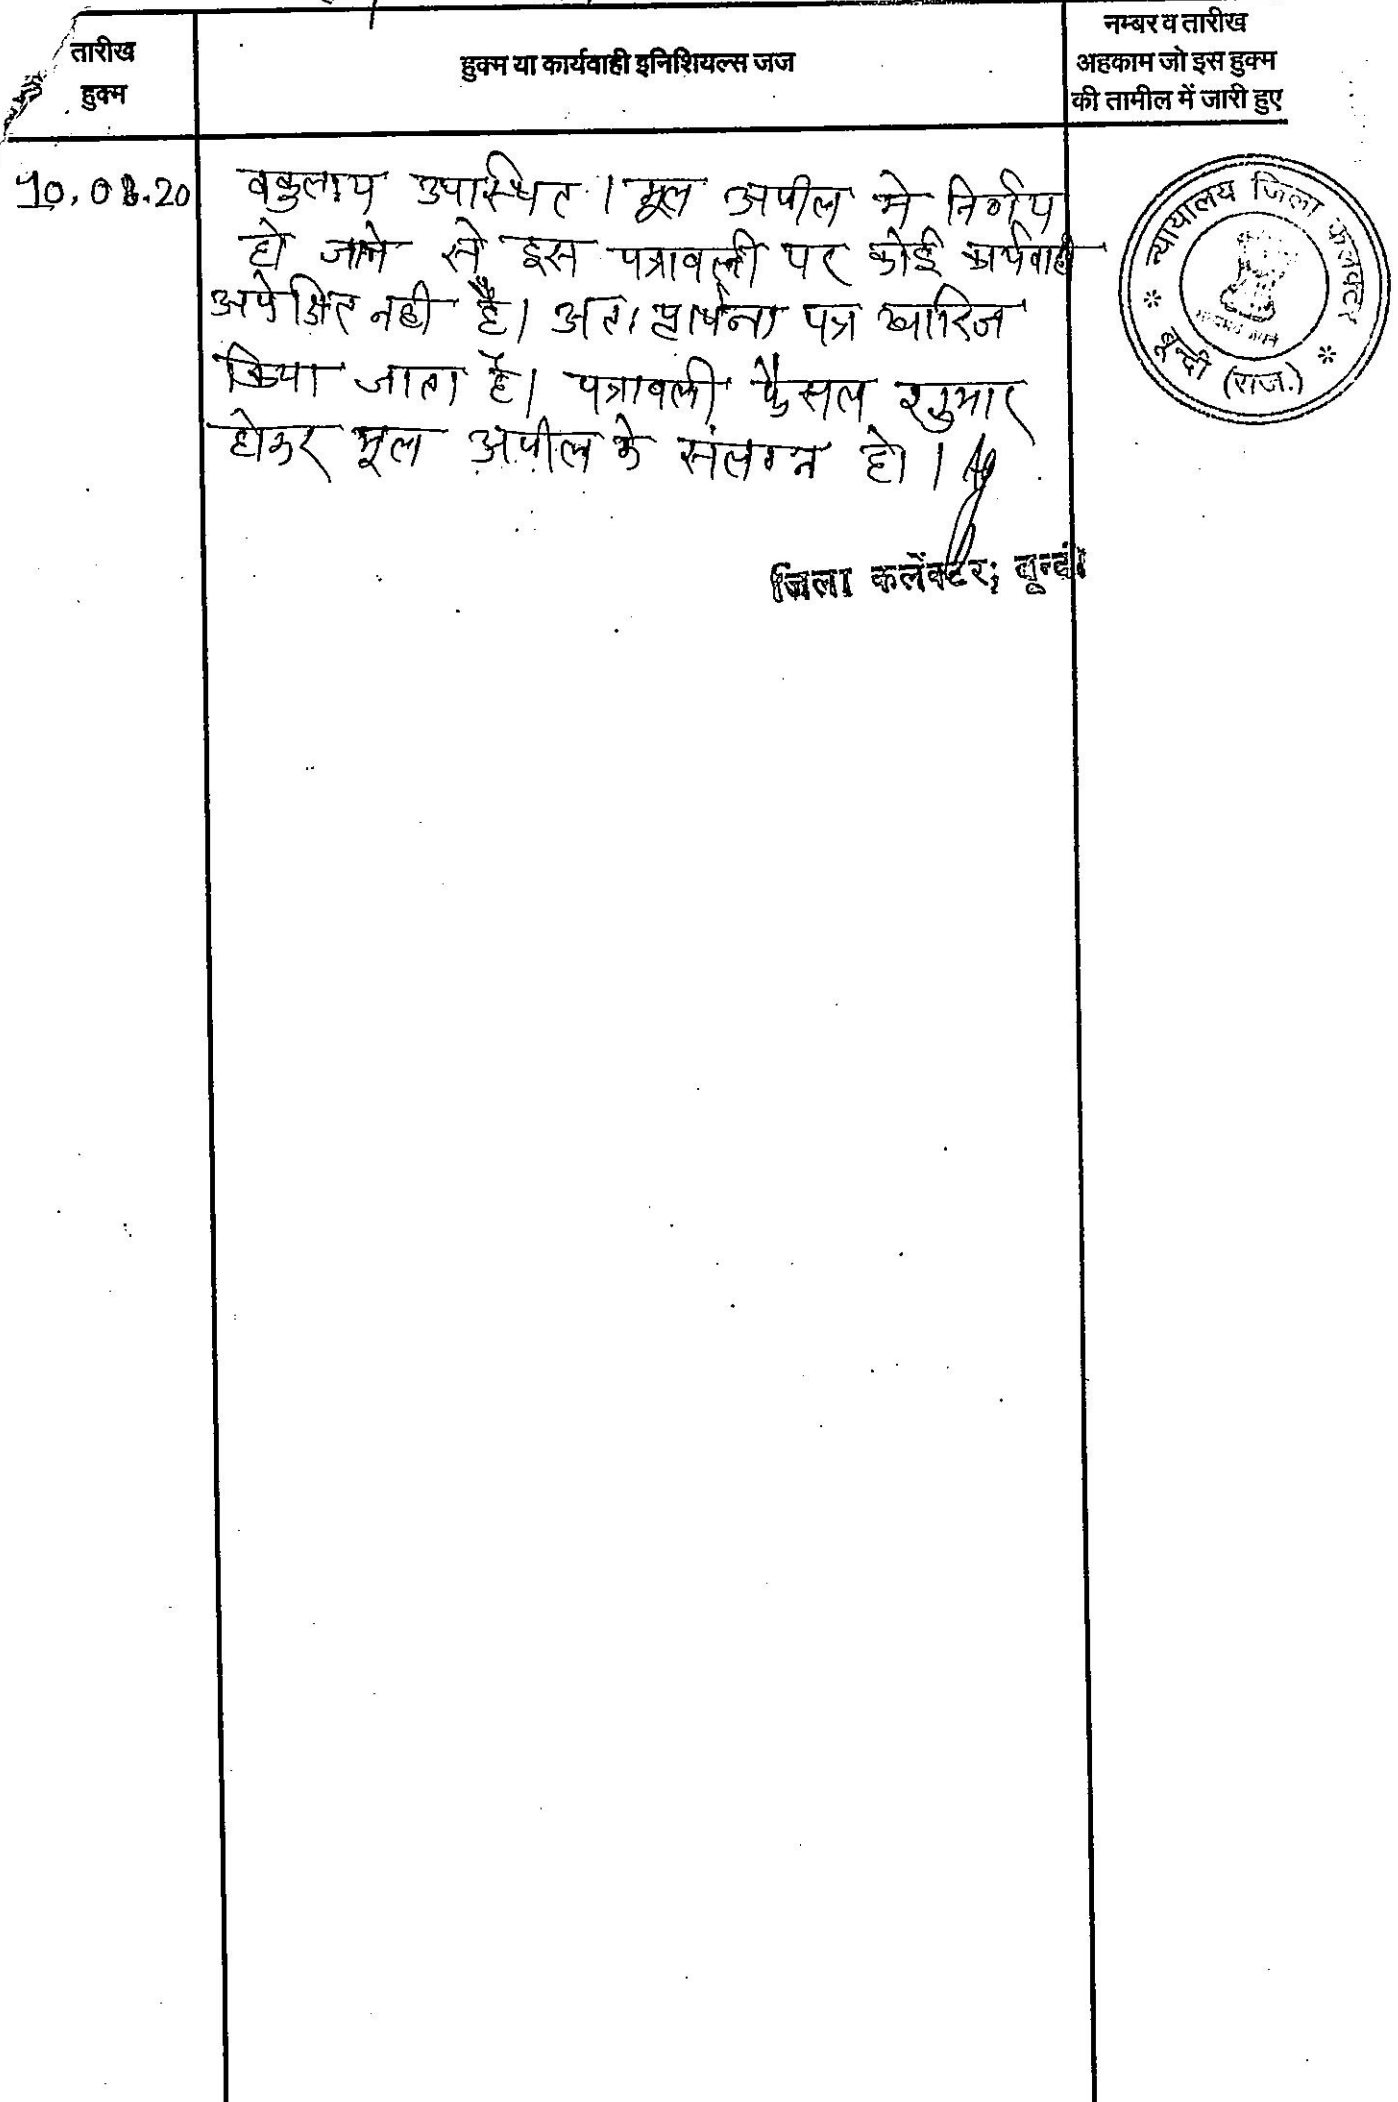 तारीख
हुक्म
हुक्म या कार्यवाही इनिशियल्स जज
नम्बर व तारीख
अहकाम जो इस हुक्म
की तामील में जारी हुए
वकुलाय उपस्थित । मूल अपील मे निर्णय
हो जाने से इस पत्रावली पर कोई कार्यवाही
अपेक्षित नही है। अतः प्रार्थना पत्र खारिज
किया जाता है। पत्रावली फैसल शुमार
होकर मूल अपील के संलग्न हो ।
जिला कलेक्टर; बून्दी
न्यायालय जिला कलक्टर
* बून्दी (राज.) *